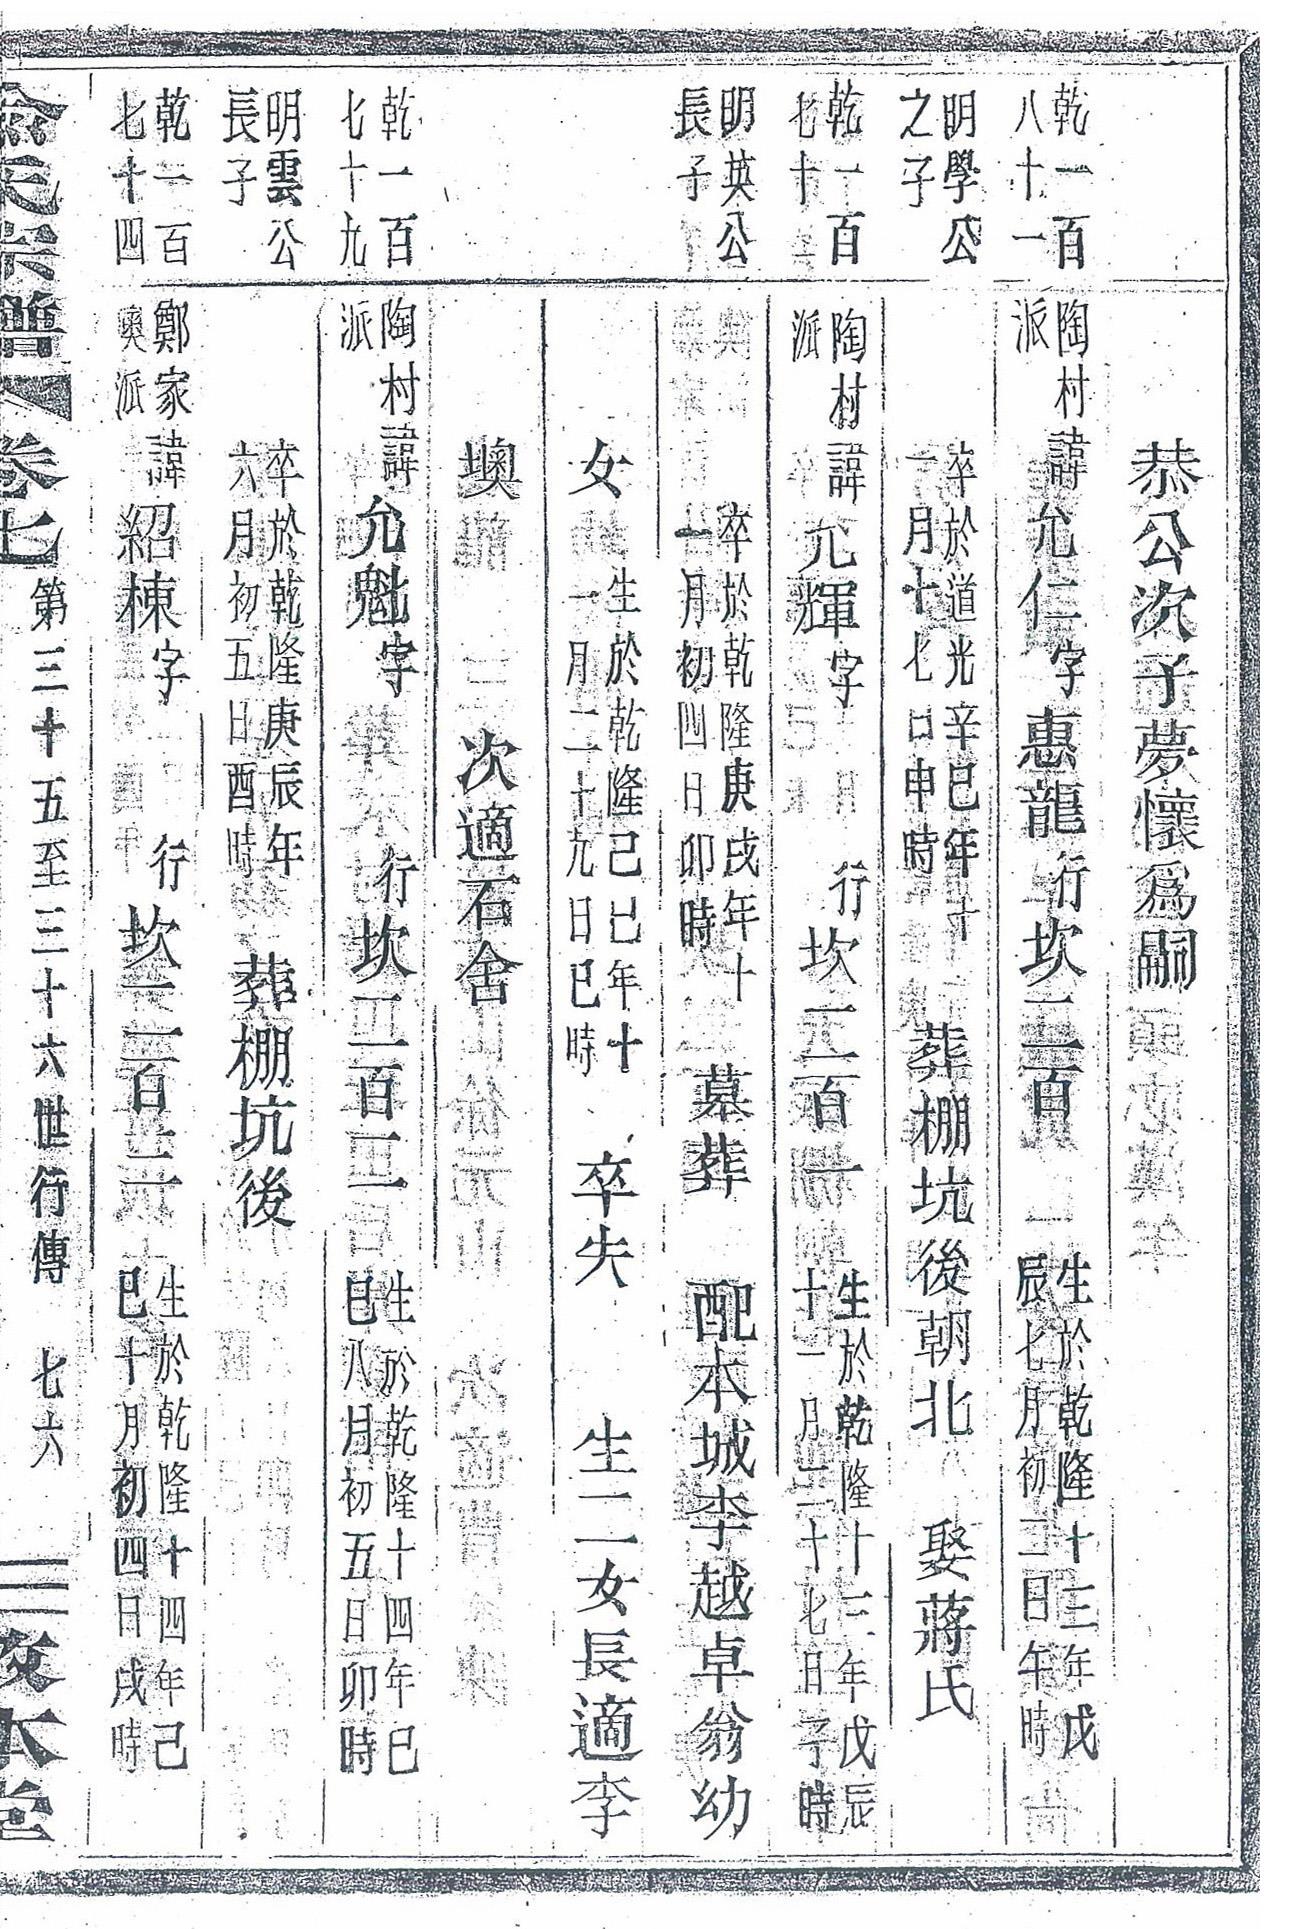 恭公次子夢懷爲嗣
乾一百
八十一
陶村
派
諱允仁字惠龍行坎二百
生於乾隆十三年戊
辰七月初三日午時
明學公
之子
卒於道光辛巳年十
一月十七日申時
葬棚坑後朝北
娶蔣氏
乾一百
七十
陶村
派
諱允輝字
行坎二百一
生於乾隆十三年戊辰
十一月二十七日子時
明英公
長子
卒於乾隆庚戌年十
一月初四日卯時
墓葬
配本城李越卓翁幼
女
生於乾隆己巳年十
一月二十九日巳時
卒失
生二女長適李
墺
次適石舍
乾一百
七十九
陶村
派
諱允魁字
行坎二百二
生於乾隆十四年己
巳八月初五日卯時
明雲公
長子
卒於乾隆庚辰年
六月初五日酉時
葬棚坑後
乾一百
七十四
鄭家
墺派
諱紹棟字
行坎二百三
生於乾隆十四年己
巳十月初四日戌時
俞氏宗譜
卷七
第三十五至三十六世行傳
七六
敦本堂